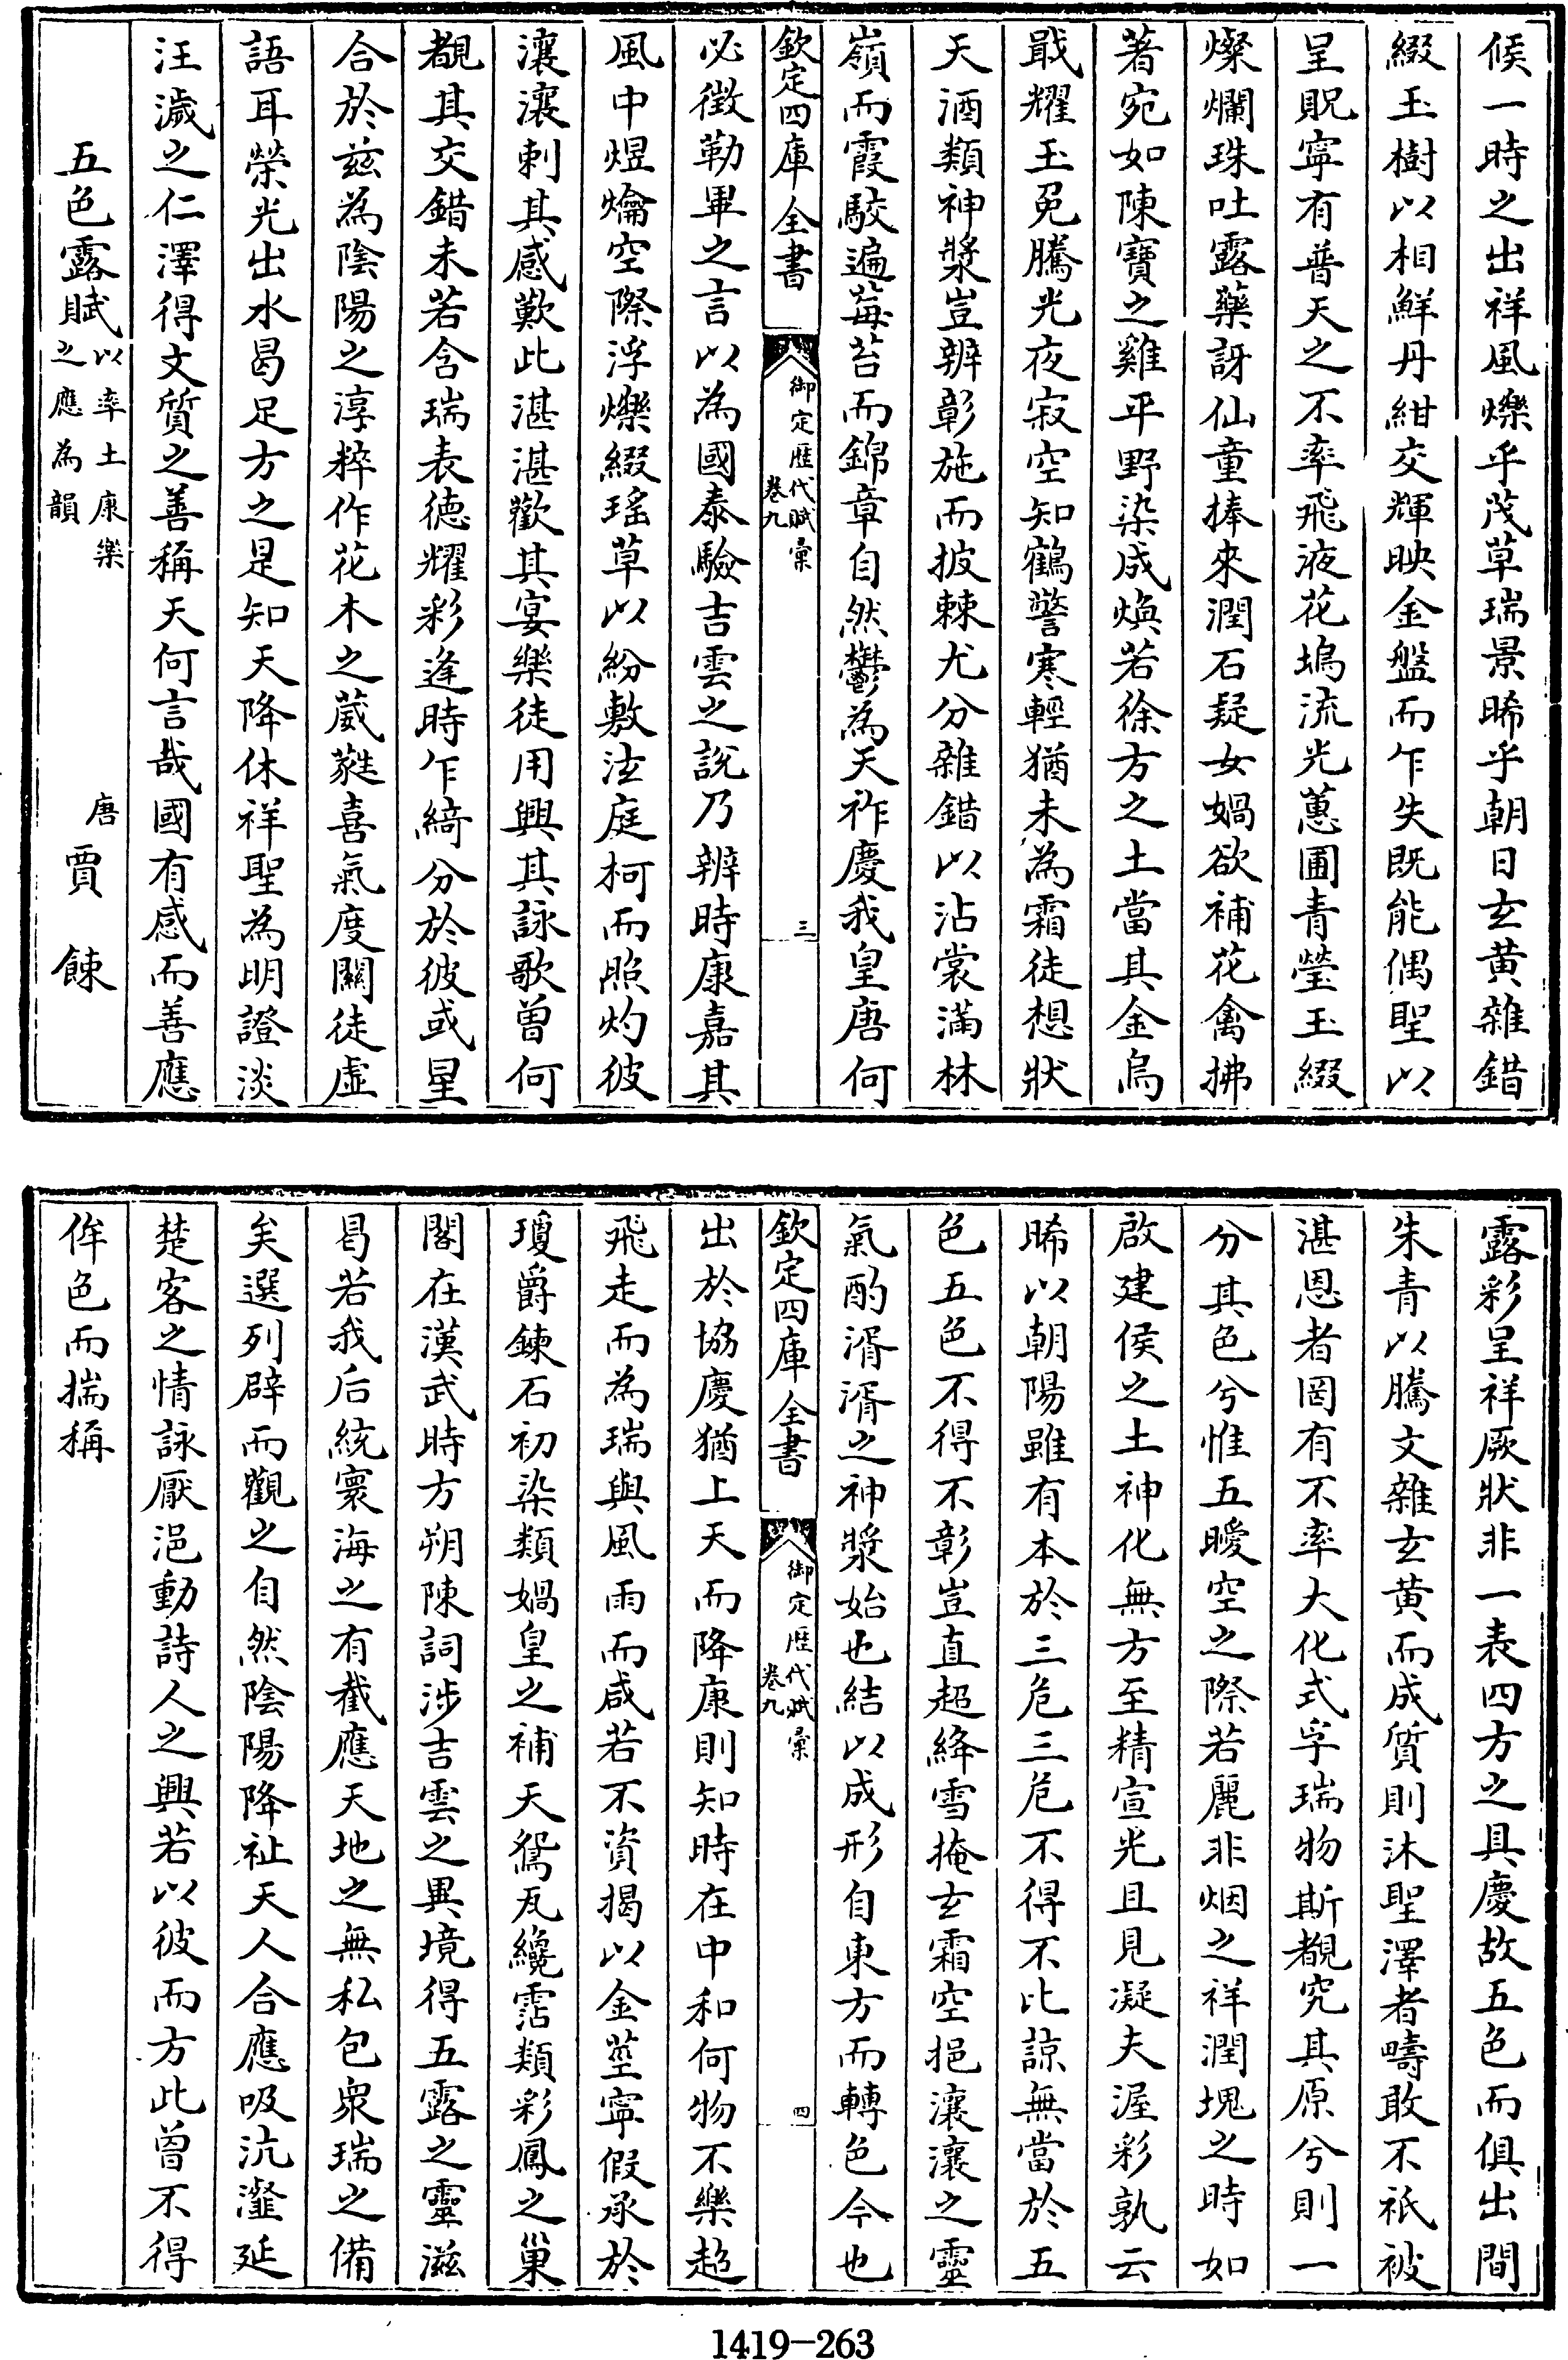 候一時之出祥風爍乎茂草瑞景晞乎朝日玄黄雜錯
綴玉樹以相鮮丹紺交輝映金盤而乍失既能偶聖以
呈貺寧有普天之不率飛液花塢流光蕙圃青瑩玉綴
燦爛珠吐露藥訝仙童捧來潤石疑女媧欲補花禽拂
著宛如陳寶之雞平野染成煥若徐方之土當其金烏
戢耀玉兎騰光夜寂空知鶴警寒輕猶未為霜徒想狀
天酒類神漿豈辨彰施而披棘尤分雜錯以沾裳滿林
嶺而霞駮遍莓苔而錦章自然鬱為天祚慶我皇唐何
欽定四庫全書 御定歴代賦彙 卷九 三
必徴勒畢之言以為國泰驗吉雲之說乃辨時康嘉其
風中煜爚空際浮爍綴瑤草以紛敷泫庭柯而照灼彼
瀼瀼刺其感歎此湛湛歡其宴樂徒用興其詠歌曾何
覩其交錯未若含瑞表德耀彩逢時乍綺分於彼或星
合於兹為陰陽之淳粹作花木之葳蕤喜氣度關徒虛
語耳榮光出水曷足方之是知天降休祥聖為明證淡
汪濊之仁澤得文質之善稱天何言哉國有感而善應
五色露賦以率土康樂之應為韻 唐 賈餗
露彩呈祥厥狀非一表四方之具慶故五色而俱出間
朱青以騰文雜玄黄而成質則沐聖澤者疇敢不祇被
湛恩者罔有不率大化式孚瑞物斯覩究其原兮則一
分其色兮惟五曖空之際若麗非烟之祥潤塊之時如
啟建侯之土神化無方至精宣光且見凝夫渥彩孰云
晞以朝陽雖有本於三危三危不得不比諒無當於五
色五色不得不彰豈直超絳雪掩玄霜空挹瀼瀼之靈
氣酌湑湑之神漿始也結以成形自東方而轉色今也
欽定四庫全書 御定歴代賦彙 卷九 四
出於協慶猶上天而降康則知時在中和何物不樂超
飛走而為瑞與風雨而咸若不資揭以金莖寧假承於
瓊爵鍊石初染類媧皇之補天鴛瓦纔霑類彩鳳之巢
閣在漢武時方朔陳詞涉吉雲之異境得五露之靈滋
曷若我后統寰海之有截應天地之無私包衆瑞之備
矣選列辟而觀之自然陰陽降祉天人合應吸沆瀣延
楚客之情詠厭浥動詩人之興若以彼而方此曾不得
侔色而揣稱
1419-263